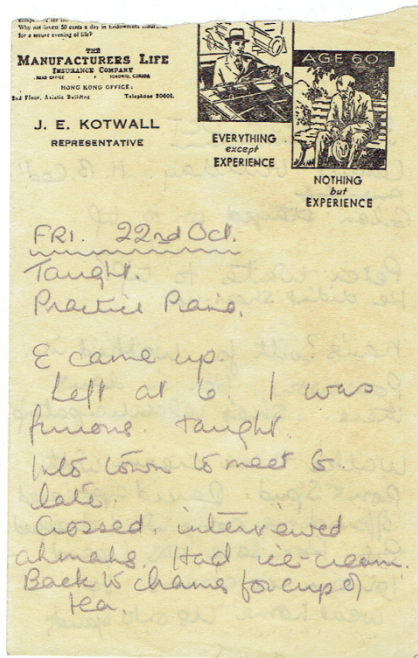 Why not invest 50 cents a day in Endowment
for a secure evening of life?
THE
MANUFACTURERS LIFE
INSURANCE COMPANY
HEAD OFFICE TORONTO, CANADA
HONG KONG OFFICE:
2nd Floor, Asiatic Building Telephone 20601.
J. E. KOTWALL
REPRESENTATIVE
EVERYTHING
except
EXPERIENCE
AGE 60
NOTHING
but
EXPERIENCE
FRI. 22nd Oct.
Taught.
Practice Piano.
E came up.
Left at 6. I was
furious. taught.
Into town to meet G.
late
Crossed. interviewed
ahmahs. Had ice-cream.
Back to chams for cup of
tea.